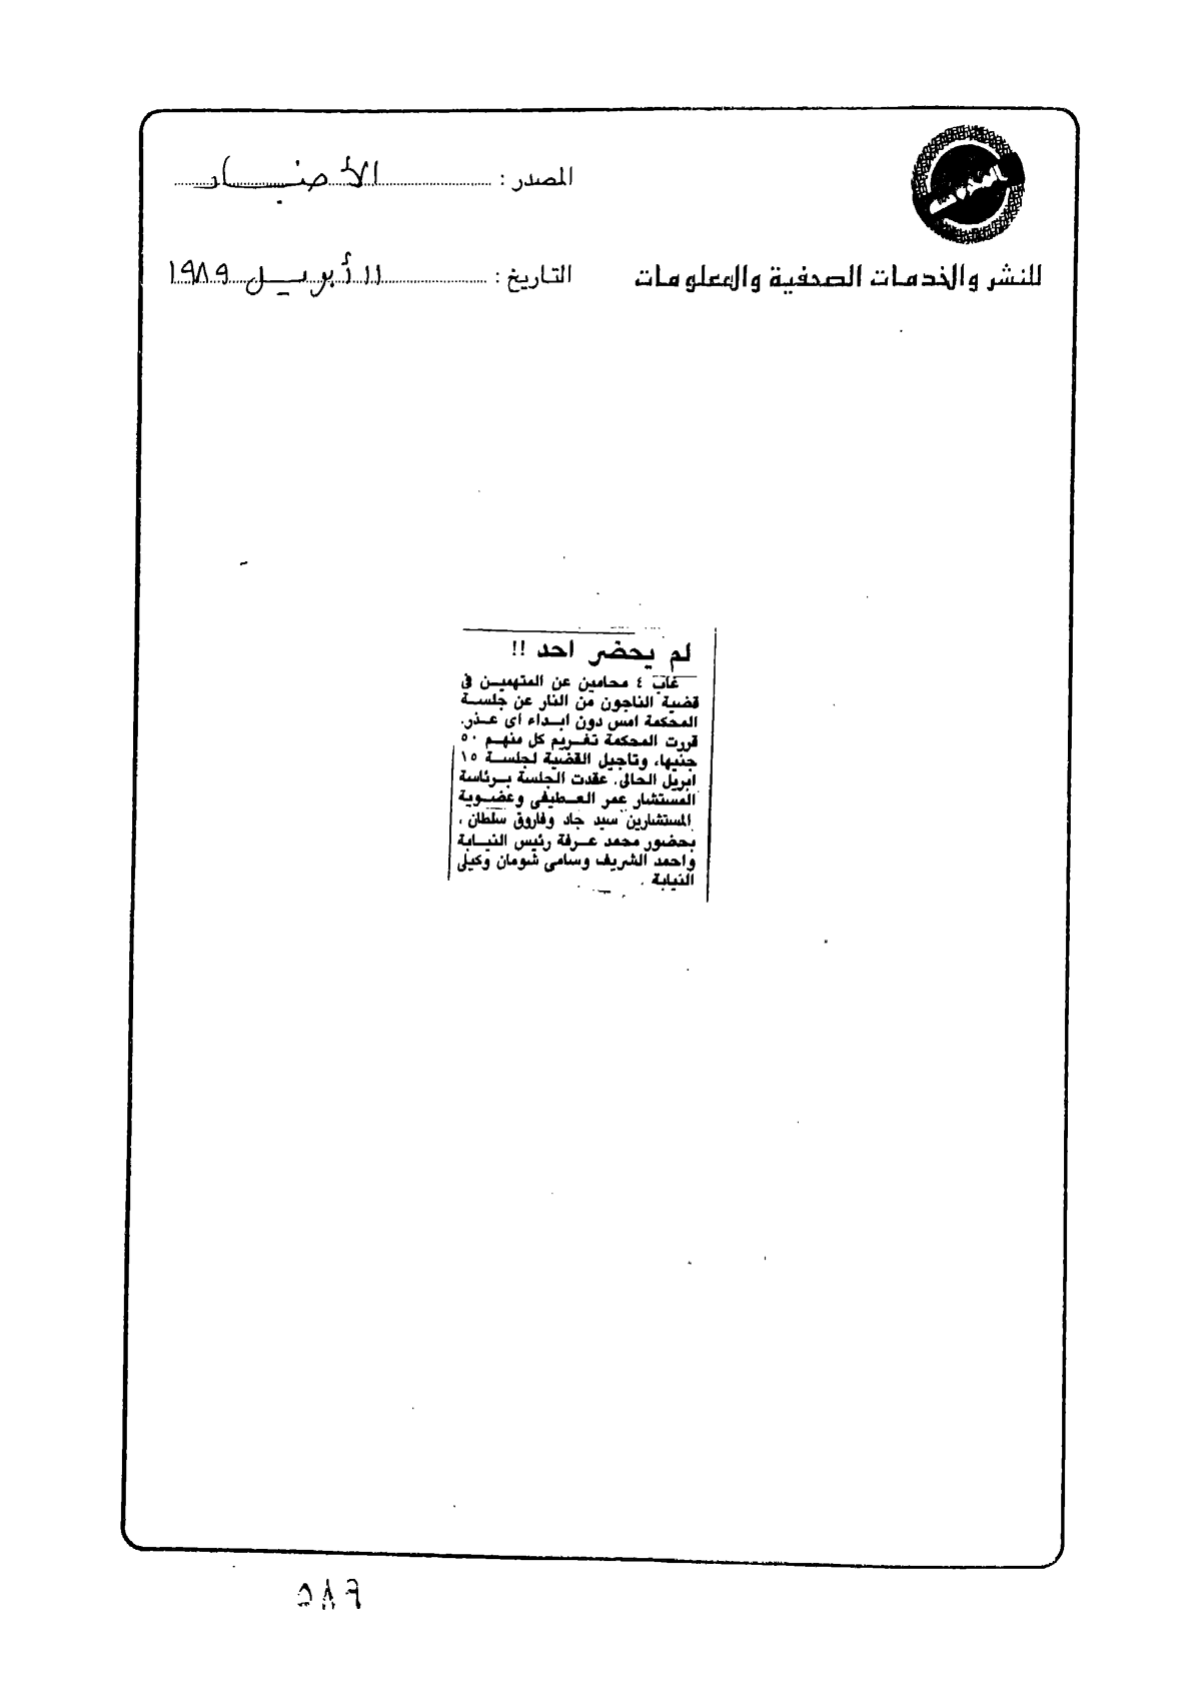 المصدر : الأخبار
للنشر والخدمات الصحفية والمعلومات
التاريخ : ١١ أبريل ١٩٨٩
لم يحضر احد !!
غاب ٤ محامين عن المتهمين فى
قضية الناجون من النار عن جلسة
المحكمة امس دون ابداء اى عذر.
قررت المحكمة تغريم كل منهم ٥٠
جنيها، وتاجيل القضية لجلسة ١٥
ابريل الحالى. عقدت الجلسة برئاسة
المستشار عمر العطيفى وعضوية
المستشارين سيد جاد وفاروق سلطان .
بحضور محمد عرفة رئيس النيابة
واحمد الشريف وسامى شومان وكيلى
النيابة .